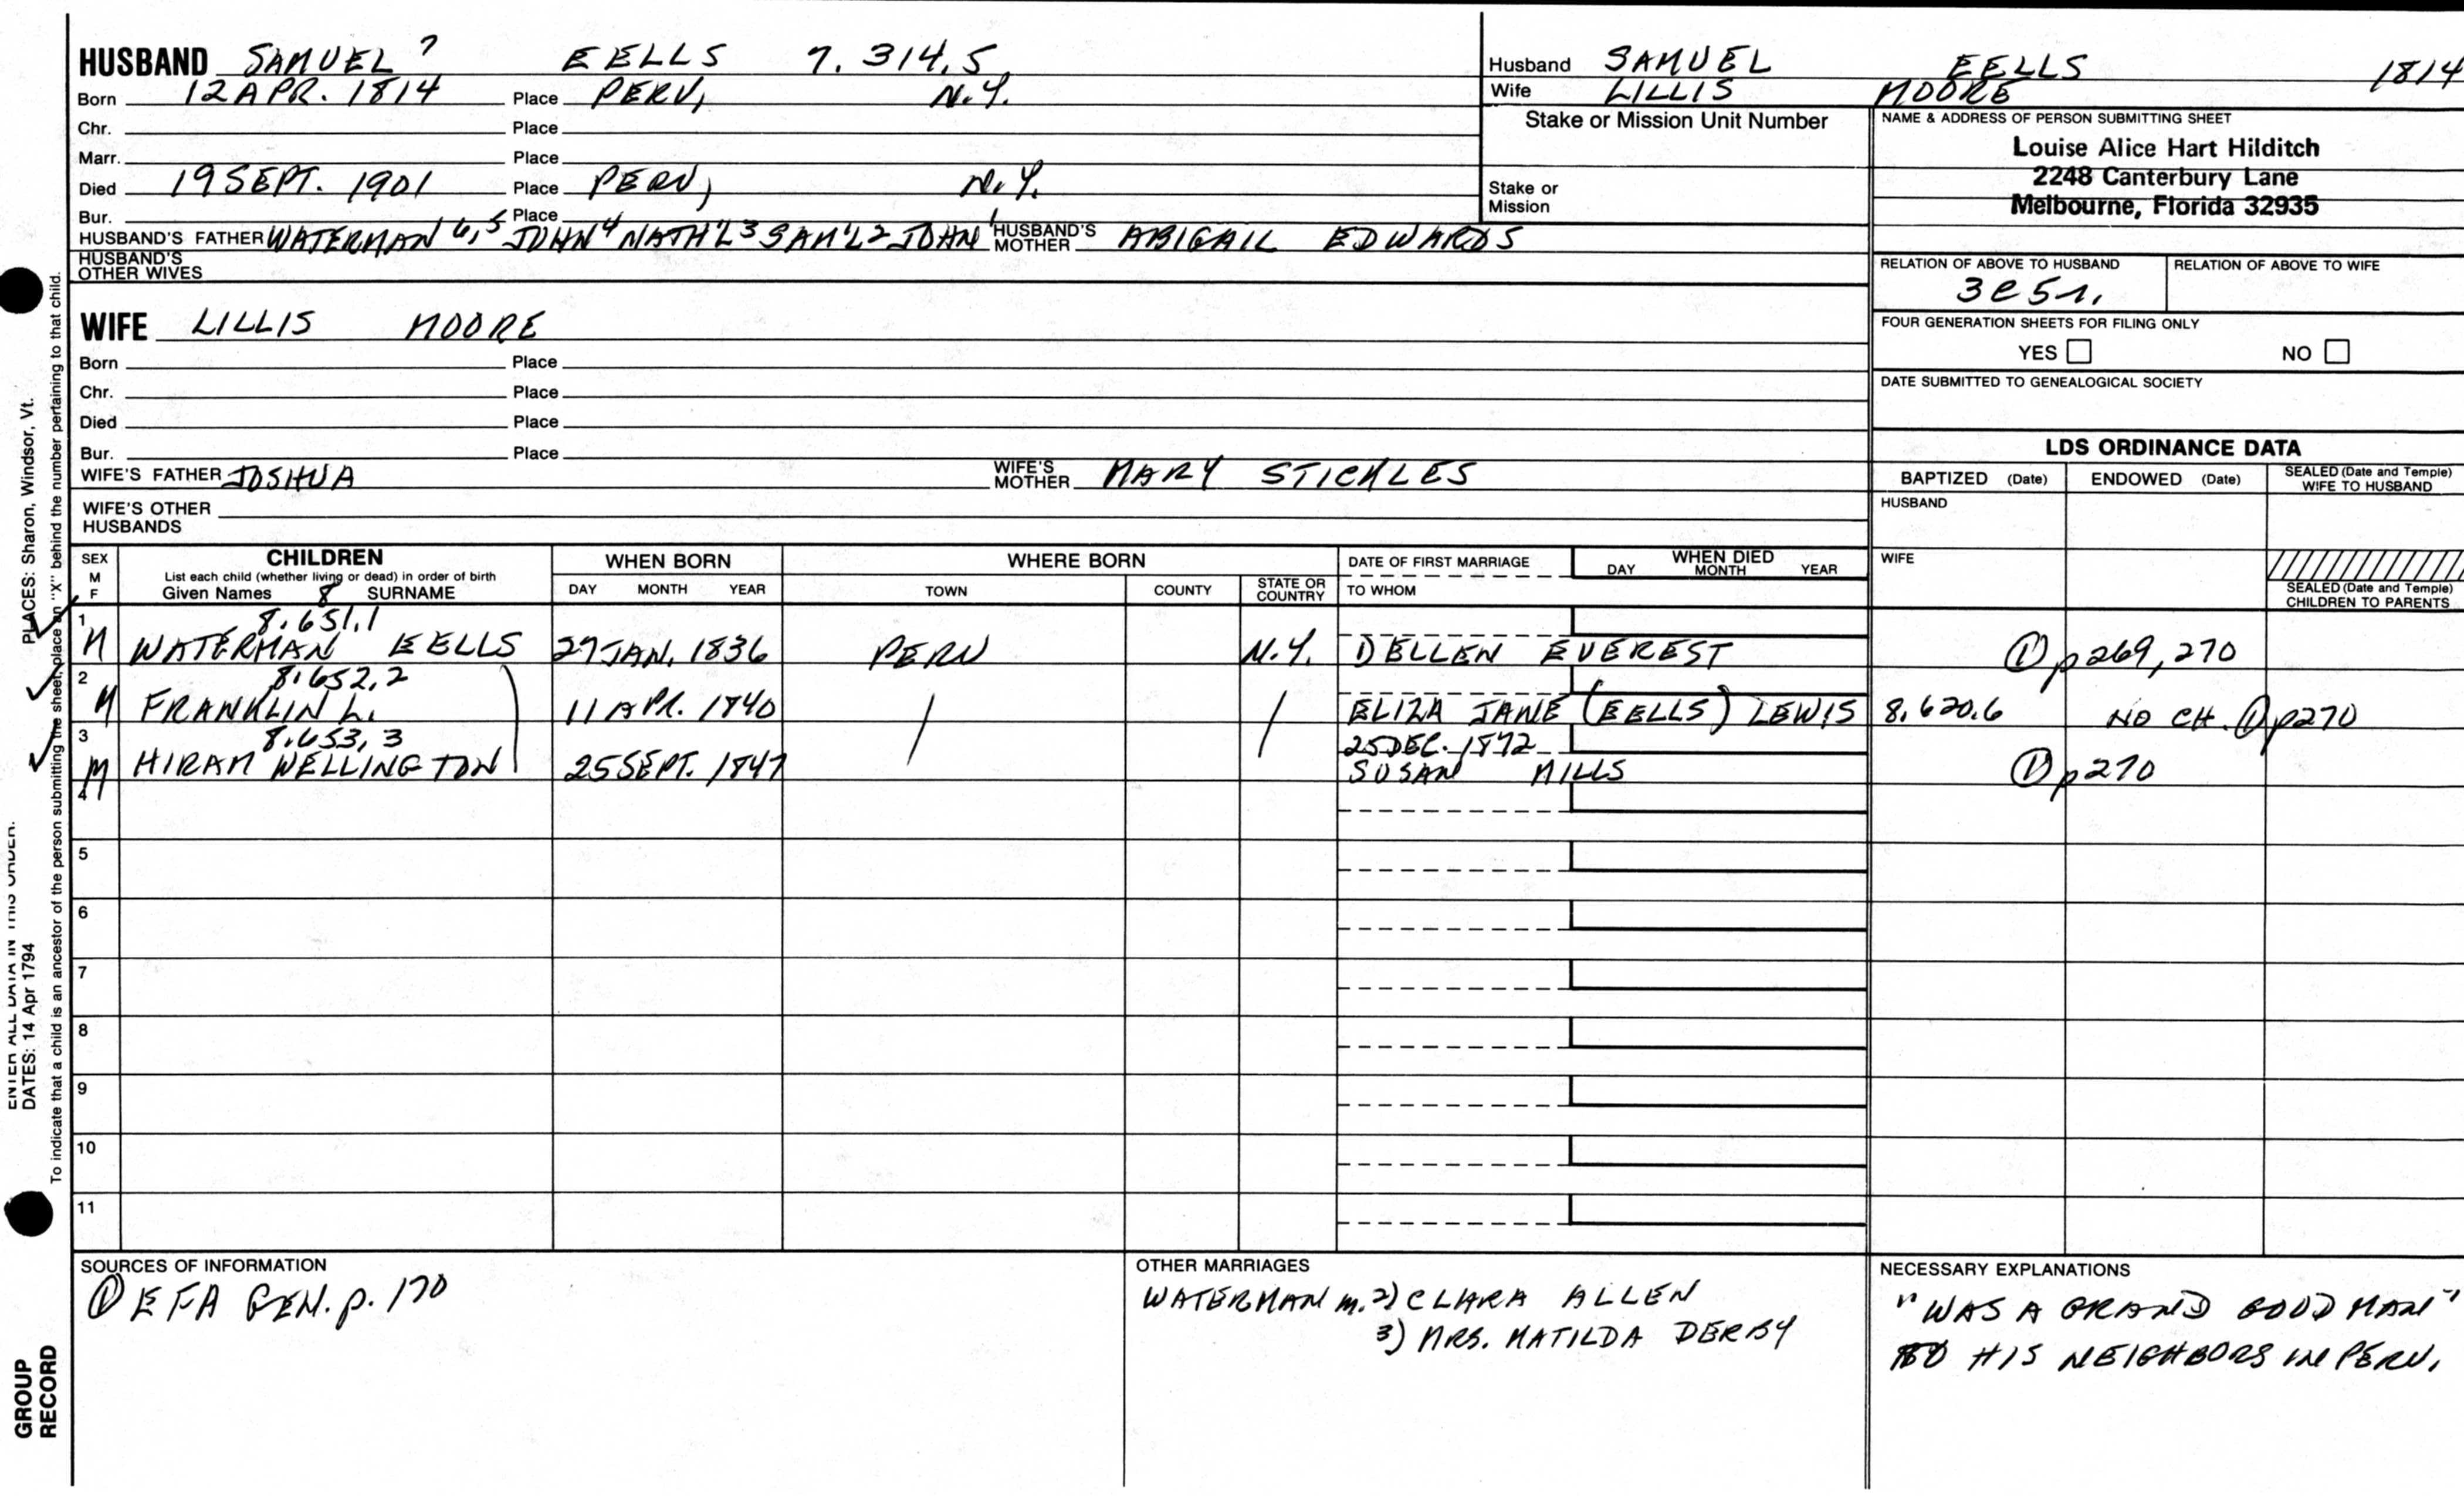 HUSBAND SAMUEL 7 EELLS 7.314.5
Born 12 APR. 1814 Place PERU, N.Y.
Chr. Place
Marr. Place
Died 19 SEPT. 1901 Place PERU, N.Y.
Bur. Place
HUSBAND'S FATHER WATERMAN 6,5 JOHN 4 NATH'L 3 SAM'L 2 JOHN 1 HUSBAND'S MOTHER ABIGAIL EDWARDS
HUSBAND'S OTHER WIVES
WIFE LILLIS MOORE
Born Place
Chr. Place
Died Place
Bur. Place
WIFE'S FATHER JOSHUA WIFE'S MOTHER MARY STICKLES
WIFE'S OTHER HUSBANDS
Husband SAMUEL EELLS 1814
Wife LILLIS MOORE
Stake or Mission Unit Number
Stake or Mission
NAME & ADDRESS OF PERSON SUBMITTING SHEET
Louise Alice Hart Hilditch
2248 Canterbury Lane
Melbourne, Florida 32935
RELATION OF ABOVE TO HUSBAND RELATION OF ABOVE TO WIFE
3c5r.
FOUR GENERATION SHEETS FOR FILING ONLY
YES NO
DATE SUBMITTED TO GENEALOGICAL SOCIETY
LDS ORDINANCE DATA
BAPTIZED (Date) ENDOWED (Date) SEALED (Date and Temple) WIFE TO HUSBAND
HUSBAND
WIFE
SEALED (Date and Temple) CHILDREN TO PARENTS
SEX M F
CHILDREN
List each child (whether living or dead) in order of birth
Given Names 8 SURNAME
WHEN BORN
DAY MONTH YEAR
WHERE BORN
TOWN COUNTY STATE OR COUNTRY
DATE OF FIRST MARRIAGE
TO WHOM
WHEN DIED
DAY MONTH YEAR
1 8.651,1
M WATERMAN EELLS 27 JAN. 1836 PERU N.Y. DELLEN EVEREST ① p269,270
2 8.652,2
M FRANKLIN L. 11 APR. 1840 / / ELIZA JANE (EELLS) LEWIS 8.620.6 NO CH. ① p270
3 8.653,3 25 DEC. 1872
M HIRAM WELLINGTON 25 SEPT. 1847 SUSAN MILLS ① p270
4
5
6
7
8
9
10
11
SOURCES OF INFORMATION
① EFA GEN. p. 170
OTHER MARRIAGES
WATERMAN m. 2) CLARA ALLEN
3) MRS. MATILDA DERBY
NECESSARY EXPLANATIONS
"WAS A GRAND GOOD MAN"
TO HIS NEIGHBORS IN PERU.
ENTER ALL DATA IN THIS ORDER.
DATES: 14 Apr 1794 PLACES: Sharon, Windsor, Vt.
To indicate that a child is an ancestor of the person submitting the sheet, place an "X" behind the number pertaining to that child.
GROUP
RECORD